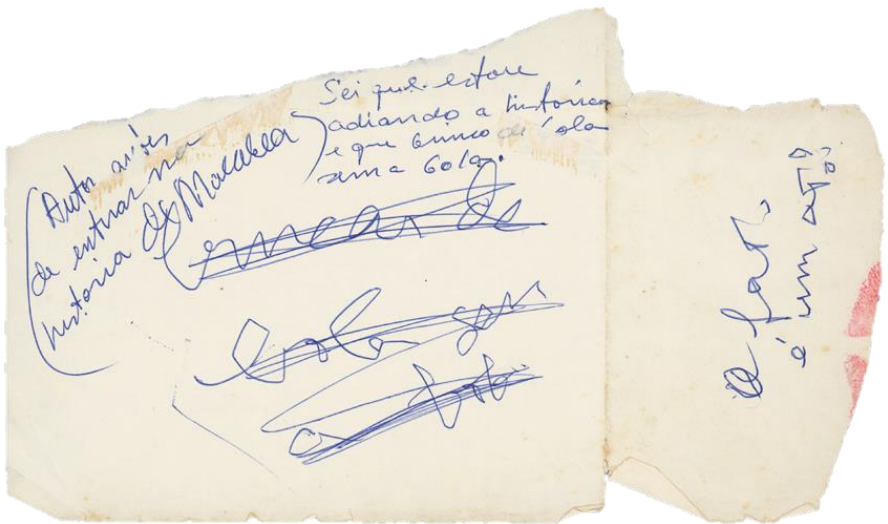 (Autor antes
de entrar na
história de Macabea)
Sei que estou
adiando a história
e que brinco de bola
sem a bola.
brincar de
bola sem
a bola
O fato
é um ato